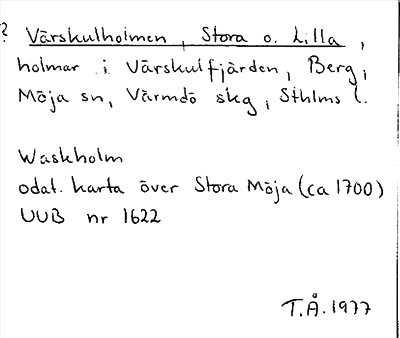 ? Värskulholmen, Stora o. Lilla,
holmar i Värskulfjärden, Berg,
Möja sn, Värmdö skg, Sthlms l.
Waskholm
odat. karta över Stora Möja (ca 1700)
UUB nr 1622
T.Å. 1977